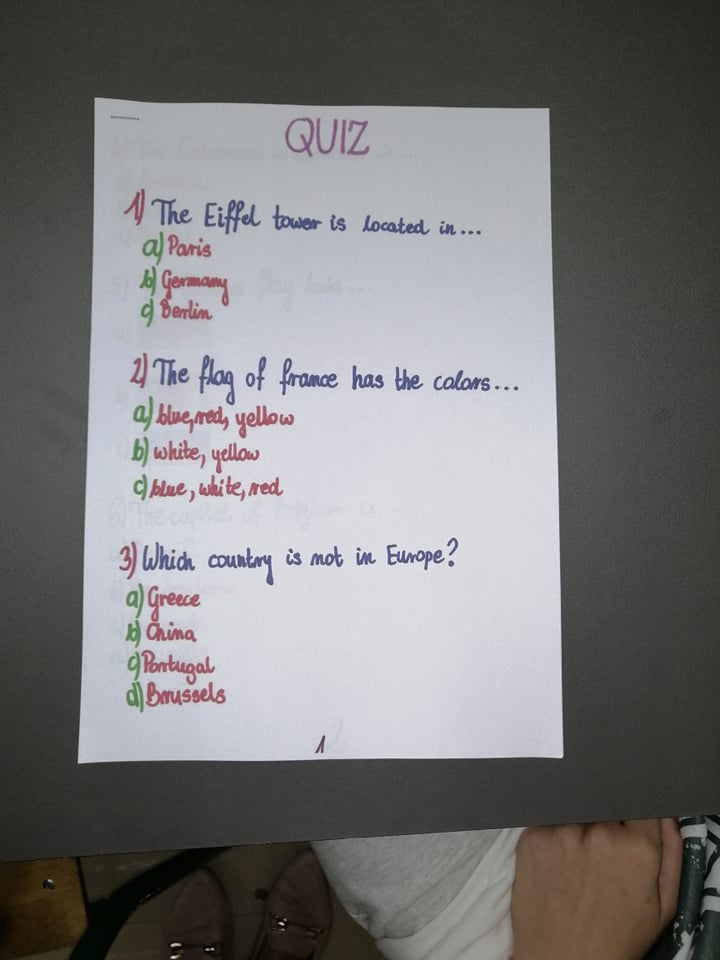 QUIZ
1) The Eiffel tower is located in...
a) Paris
b) Germany
c) Berlin
2) The flag of france has the colors...
a) blue, red, yellow
b) white, yellow
c) blue, white, red
3) Which country is not in Europe?
a) Greece
b) China
c) Portugal
d) Brussels
1